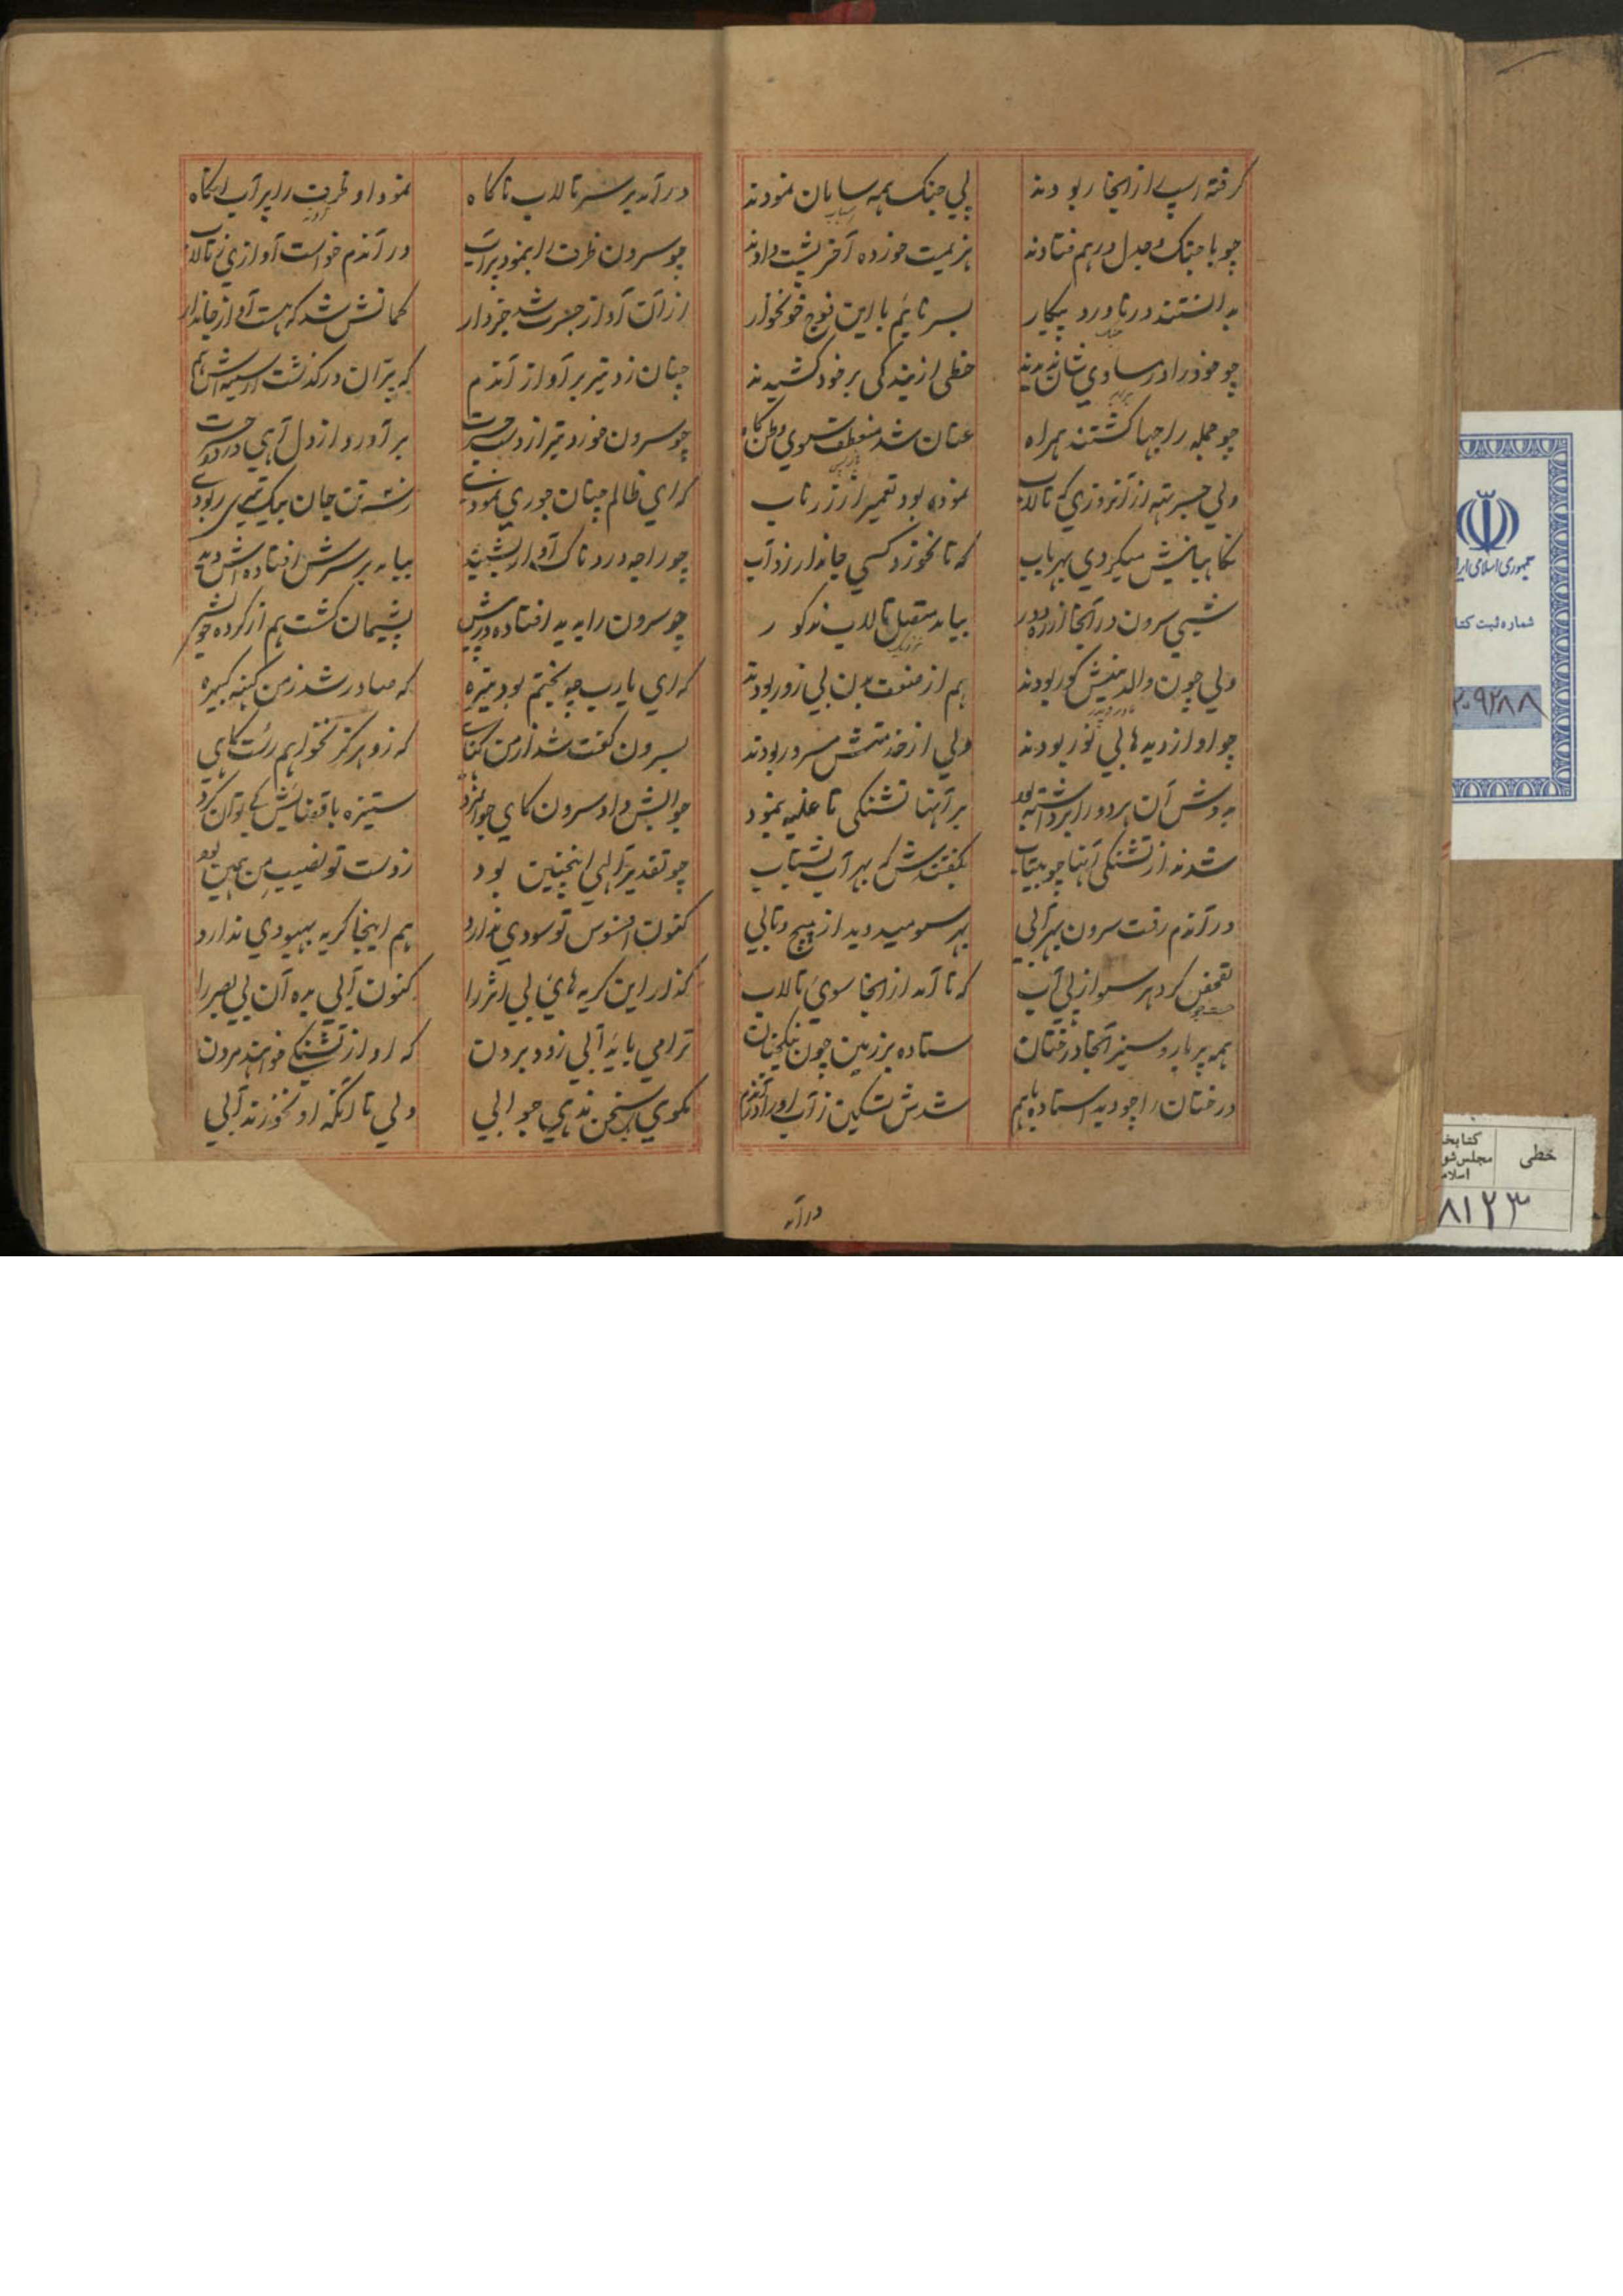 گرفته اسپ از انجا ربودند پی جنگ همه سامان نمودند
اسباب
چو با جنگ و جدل درهم فتادند هزیمت خورده آخر پشت دادند
بدانستند در ناورد پیکار بسر نائیم با این فوج خونخوار
جنگ
چو خود را در مساوی شان ندیدند خطی از بندگی بر خود کشیدند
برابر
چو جمله راجها گشتند همراه عنان شد منعطف سوی وطن گاه
ولی جسرته از آنروزی که تالاب نموده بود تعمیر از زر ناب
نگاهبانیش میکردی بهر باب که تا نخورد کسی جاندار زو آب
شبی سرون در آنجا از ره دور بیامد متصل تالاب مذکور
نزدیک
ولی چون والدینش کور بودند هم از ضعف بدن بی زور بودند
مادر و پدر
چو او از دیدها بی نور بودند ولی از خدمتش مسرور بودند
بدوش آن هر دو را برداشته بود بر آنها تشنگی تا غلبه بنمود
شدند از تشنگی آنها چو بیتاب بگفتندش که بهر آب بشتاب
در آندم رفت سرون بهر آبی بهر سو میدوید از پیچ و تابی
تفحص کرد هر سو از پی آب که تا آمد از انجا سوی تالاب
جست جو
همه پر بار و سبز آنجا درختان ستاده بر زمین چون نیکبختان
درختان را چو دید استاده باهم شدش تسکین ز آب او را در آندم
درآمد
درآمد بر سر تالاب ناگاه نمود او ظرف را پر آب آنگاه
چو سرون ظرف را بنمود پر آب در آندم خواست آوازی ز تالاب
از آن آواز جسرت شد خبردار گمانش شد که هست آواز جاندار
چنان زد تیر بر آواز آندم که پران در گذشت از سینه اش هم
چو سرون خورد تیر از دست جسرت بر آورد از دل آهی درد حسرت
که ای ظالم چنان جوری نمودی ز تن جان بیک تیری ربودی
چو راجه دردناک آواز بشنید بیامد بر سرش افتاده اش دید
چو سرون را بدید افتاده در پیش پشیمان گشت هم از کرده خویش
که ای یارب چه بختم بود تیره که صادر شد ز من گنه کبیره
بسرون گفت شد از من گناهی که زو هرگز نخواهم رستگاری
جوابش داد سرون کای جوانمرد ستیزه با قضایش کی توان کرد
چو تقدیر الهی اینچنین بود ز دست تو نصیب من همین بود
کنون افسوس تو سودی ندارد هم اینجا گریه بهبودی ندارد
گذار این گریه های بی اثر را کنون آبی بده آن بی بصر را
ترا می باید آبی زود بردن که او از تشنگی خواهند مردن
نگوی سخن ندهی جوابی ولی تا آنکه او نخورند آبی
جمهوری اسلامی ایران
شماره ثبت کتاب
۲۰۹۲۸۸
خطی
کتابخانه
مجلس شورای
اسلامی
۸۱۲۳